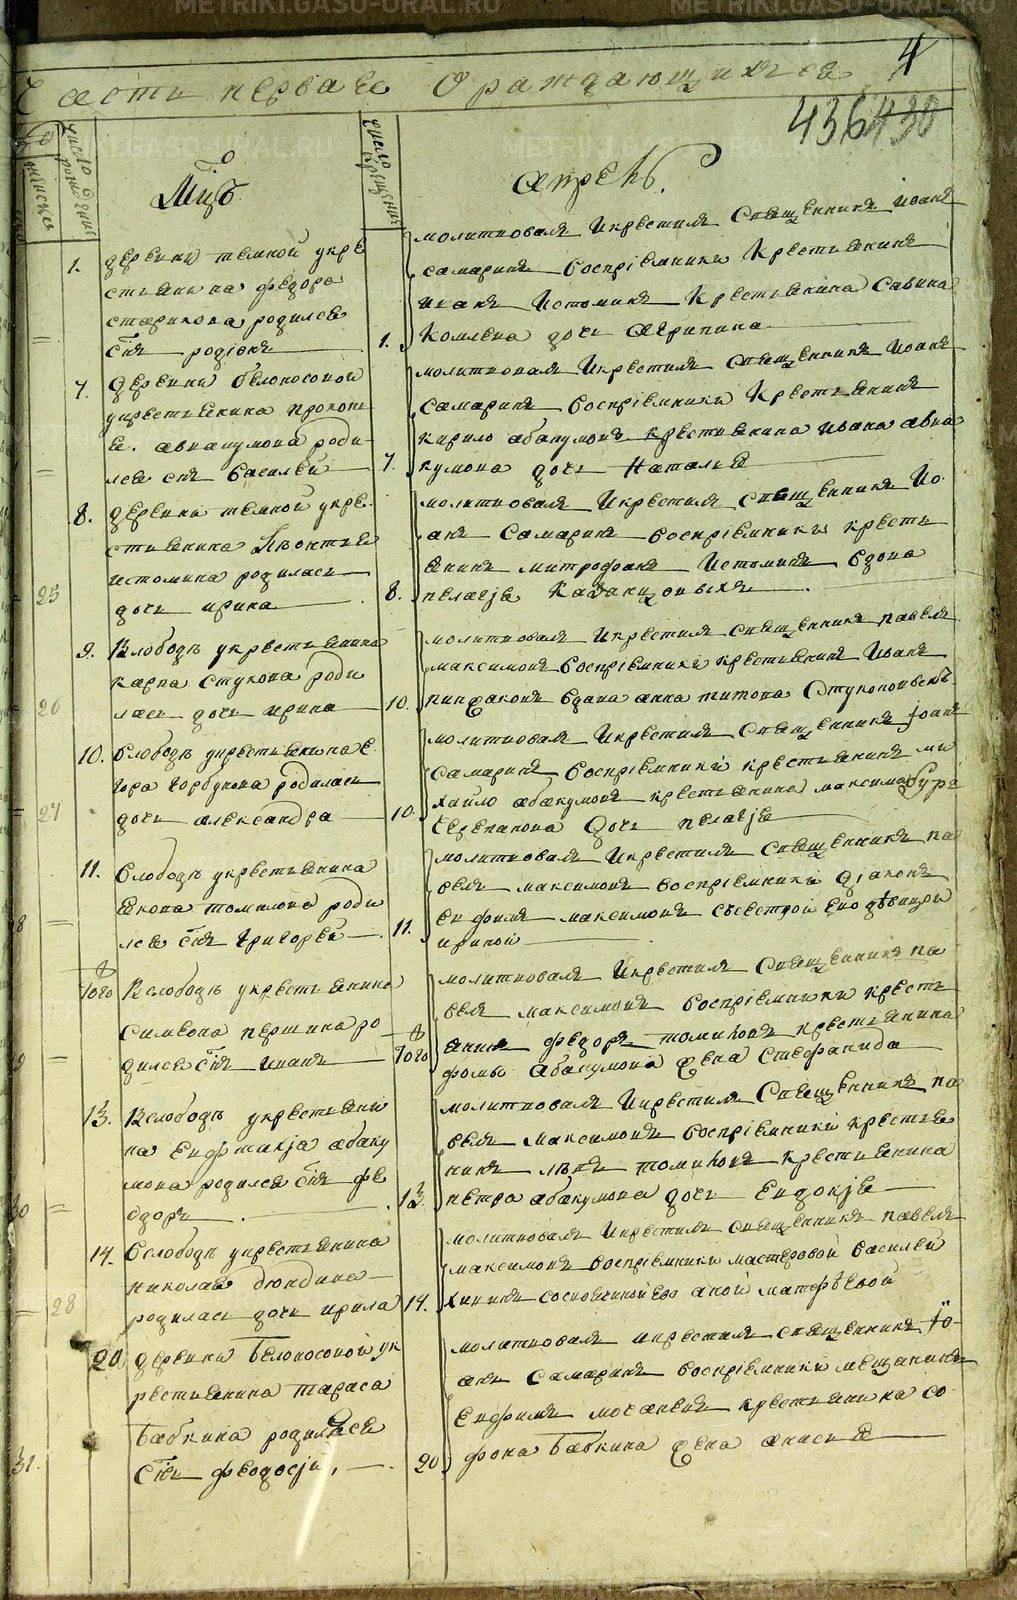 METRIKI.GASU-URAL.RU
METRIKI.GASU-URAL.RU
4
Части первая О раждающихся
436 430
женска
число рождения
Мцъ
число крещения
апрель.
1.
деревни темной укре
стьянина федора
старикова родился
снъ родіонъ
1.
молитвовалъ Икрестилъ Священникъ иоанъ
самаринъ воспріемники Крестьянинъ
иванъ Истоминъ Крестьянина Савина
дочь Агрипина
7.
деревни белоносовой
укрестьянина прокоп
я. авакумова роди
лся снъ василей
7.
молитвовалъ Икрестилъ Священникъ иоанъ
самаринъ воспріемники Крестьянинъ
кирило абакумовъ крестьянина ивана авва
кумова дочь Наталья
8.
25
деревни темной укре
стьянина Леонтья
истомина родилась
дочь ирина
8.
молитвовалъ Икрестилъ священникъ Ио
анъ Самаринъ воспріемники кресть
янинъ митрофанъ Истоминъ вдова
пелагія
9.
26
Вслободъ укрестьянина
карпа Стукова роди
лась дочь ирина
10.
молитвовалъ Икрестилъ священникъ павелъ
максимовъ воспріемники крестьянинъ Иванъ
вдова анна титова
10.
27
Вслободъ укрестьянина е
гора горбунова родилась
дочь александра
10.
молитвовалъ Икрестилъ Священникъ Іоанъ
Самаринъ воспріемники крестьянинъ ми
хайло абакумовъ крестьянина максима
черепанова дочь пелагія
11.
Вслободъ укрестьянина
якова томилова роди
лся снъ григорей
11.
молитвовалъ Икрестилъ Священникъ па
велъ максимовъ воспріемники діаконъ
ефимъ максимовъ съсестрой ево девицой
ириной
того
Вслободъ укрестьянина
симеона першина ро
дился снъ иванъ
того
молитвовалъ Икрестилъ Священникъ па
велъ максимовъ воспріемники кресть
янинъ федоръ томиловъ крестьянина
фомы абакумова жена Стефанида
13.
30
Вслободъ укрестьяни
на Евфтихія абаку
мова родился снъ фе
одоръ
13.
молитвовалъ Икрестилъ Священникъ па
велъ максимовъ воспріемники крестья
нинъ левъ томиловъ крестьянина
петра абакумова дочь Евдокія
14.
28
Вслободъ укрестьянина
николая дюндина
родилась дочь ирина
14.
молитвовалъ Икрестилъ священникъ павелъ
максимовъ воспріемники мастеровой василей
матфеевой
20
31.
деревни белоносовой ук
рестьянина тараса
бабкина родился
Снъ феодосій,
20
молитвовалъ икрестилъ священникъ Іо
анъ Самаринъ воспріемники мещанинъ
Ефимъ крестьянина со
фона бабкина жена анасья
METRIKI.GASU-URAL.RU
METRIKI.GASU-URAL.RU